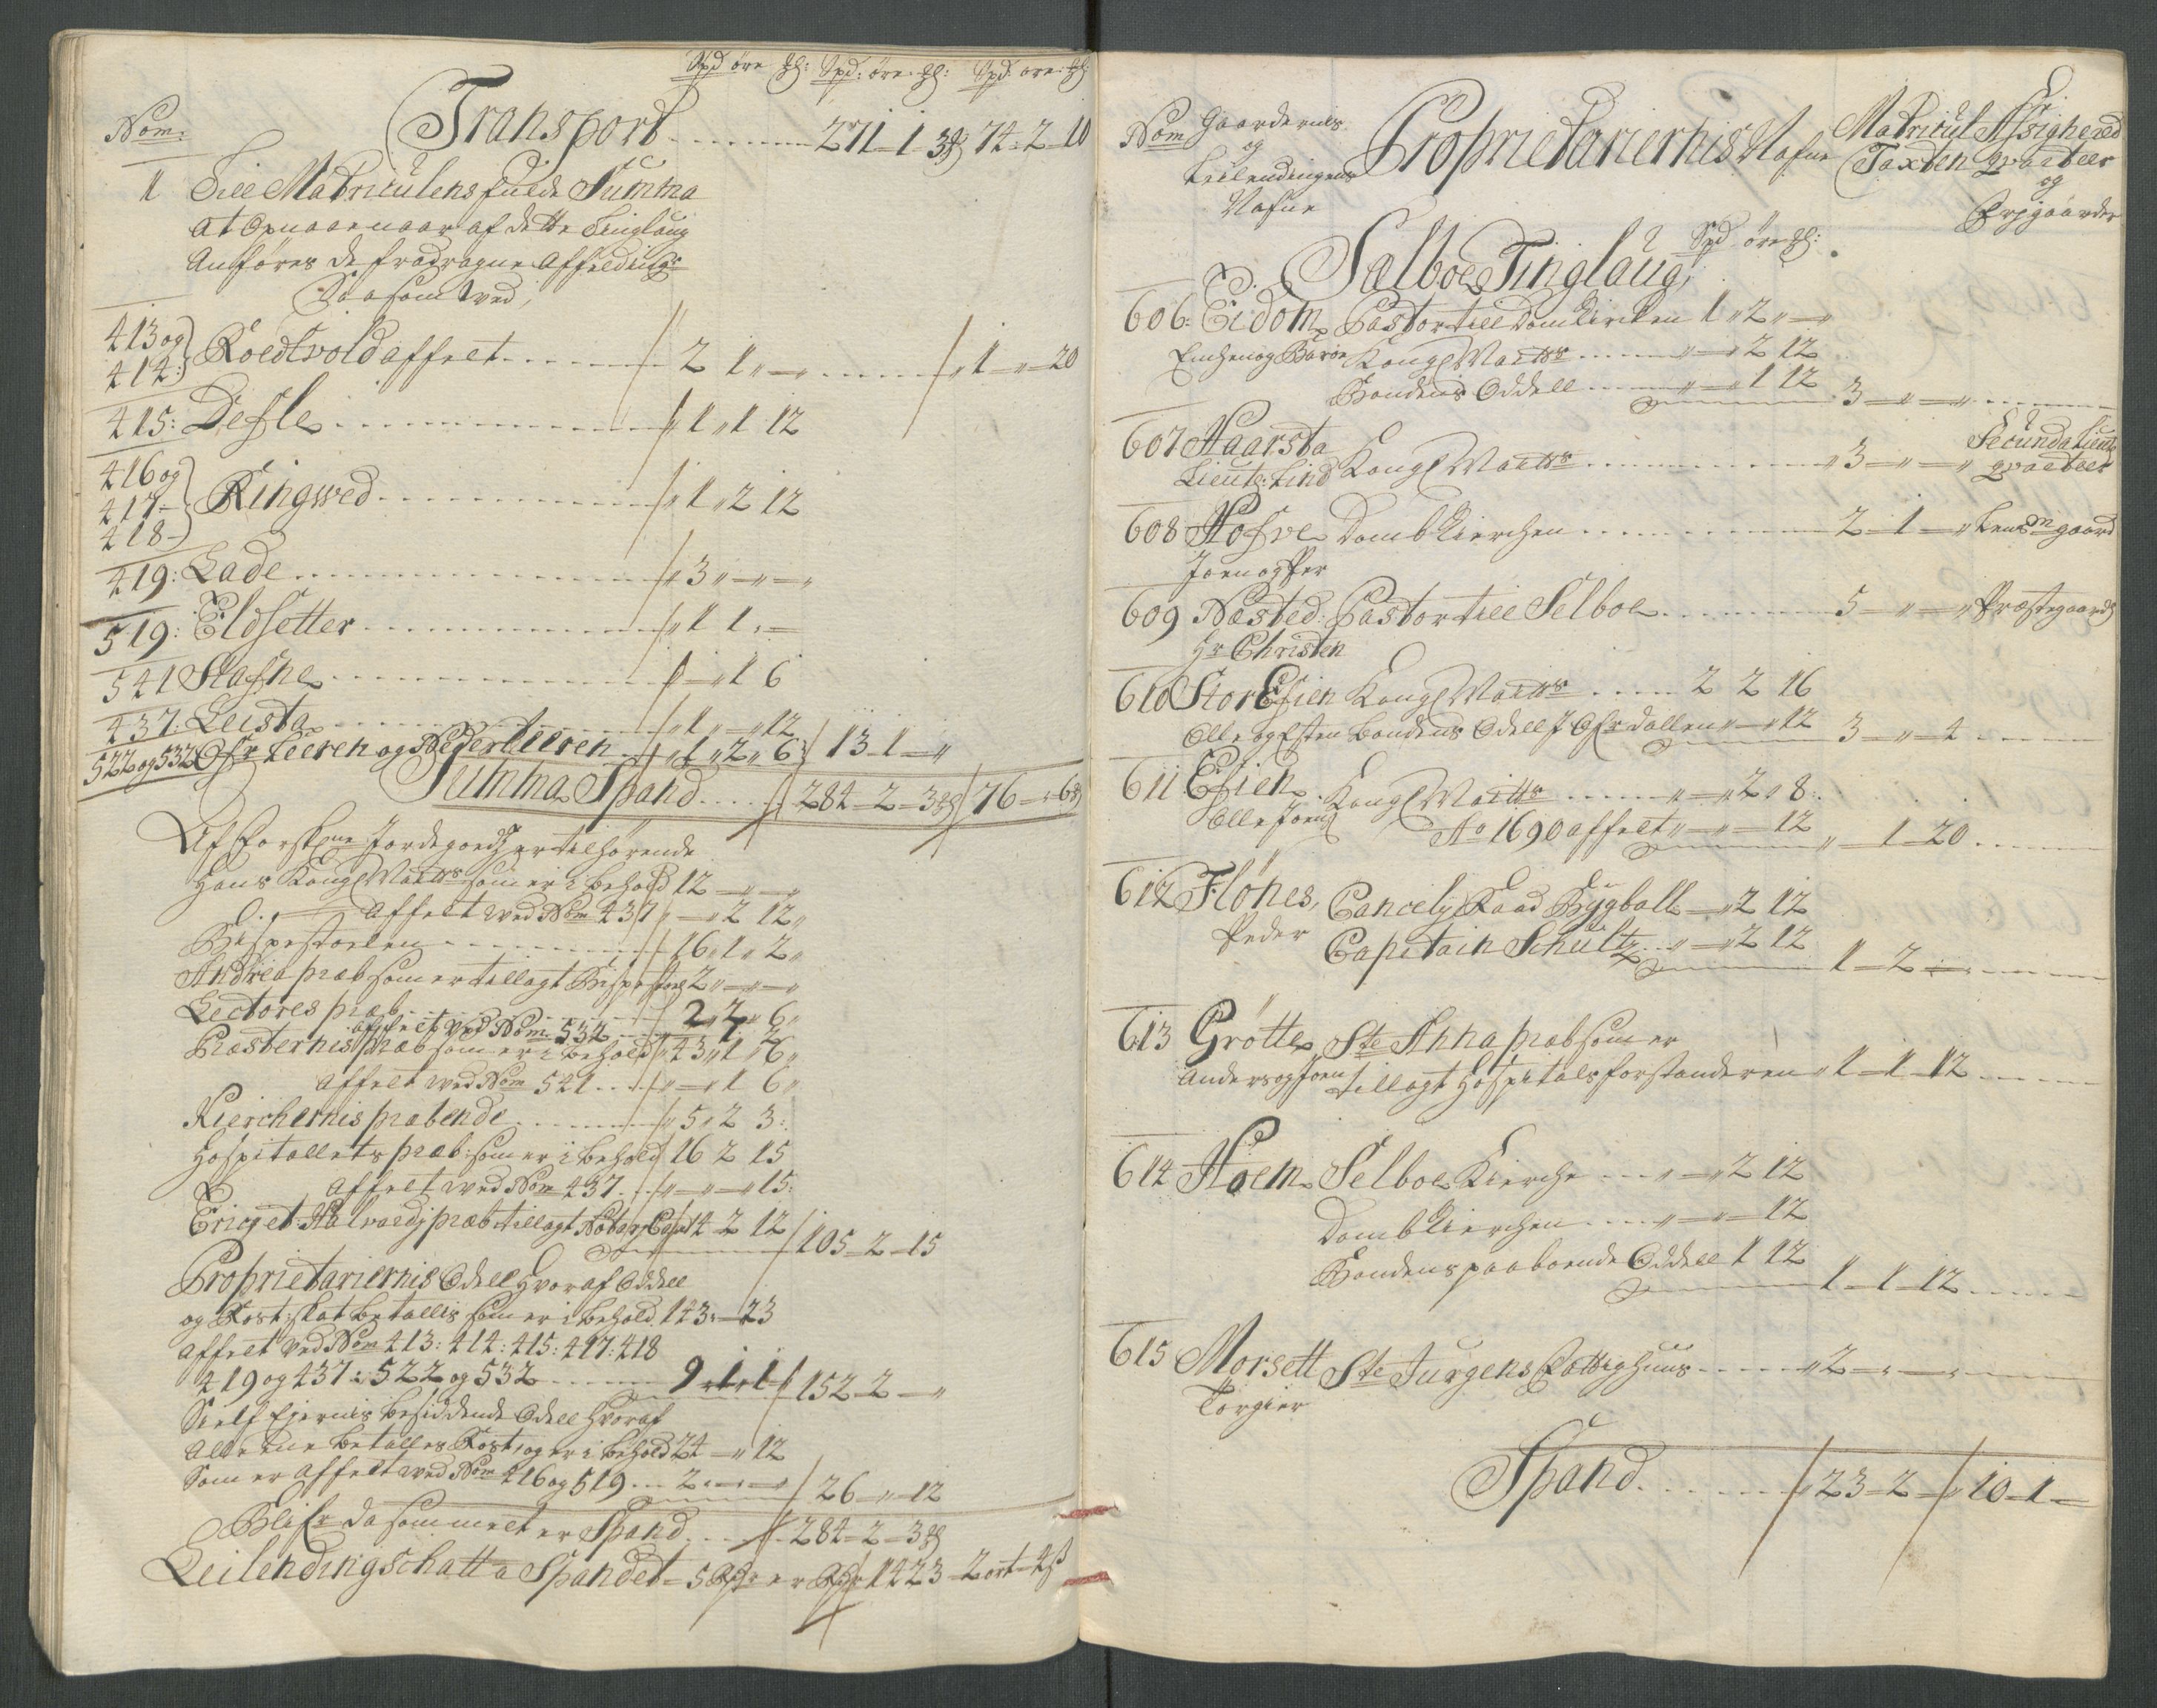 Spd öre ꝸ: Spd: öre: ꝸ: Spd: öre: ꝸ:
Nom: Transport ........ 271 - 1 - 3 74 - 2 - 10
Till Matriculens fulde Summa
at Opnaae naar af dette Tinglaug
Anföres de fradragne Affelding
Saasom wed
413 og
414: Roedtvold affelt ...... 2 1 „ — „ ...... „ 1 - „ - 20
415: Defle ............ „ 1 „ 1 12
416 og
417 -
418 - Ringwed ............ „ 1 „ 2 12
419: Lade ............ „ 3 „ — „ — „
519: Eldsetter ............ „ 1 1 „ —
541 Stafne ............ „ — „ 1 6
437: Leista ............ „ 1 „ — „ 12
522 og 532 Ofr Leeren og Neder Leeren .. „ 1 „ 2 „ 6 / 13 - 1 — „
Summa Spand ..... 284 - 2 - 3 / 76 — „ 6
Af Forskne Jordegoedz er tilhörende
Hans Kongl Maitts som er i behold 12 — „ — „
Affelt wed Nom 437 „ — „ 2 12 „
Bispestoelen ............ 16 „ 1 „ 2 „
Andrea præb som er tillagt Bispestoel 2 „ — „ — „
Lectores præb ............ 2 „ 2 „ 6 „
affelt ved Nom 532 .... 1 2
Præsternis præb som er i behold 43 „ 1 „ 6 „
affelt wed Nom 541 .... „ — „ 1 6 „
Kierchernis præbende ......... „ 5 „ 2 3 :
Hospitallets præb: som er i behold 16 2 15
affelt wed Nom 437 ... „ — „ — „ 15 :
Ericj et Halvardj præb: tillagt Nober Capit 4 - 2 12 / 105 - 2 - 15
Proprietariernis Odell hvoraf Odell
og Rost: skat betallis som er i behold 143 „ — 23
affelt ved Nom 413: 414: 415: 417: 418
419 og 437: 522 og 532 ....... 9 1 1 / 152 - 2 — „
Sielf Ejernis besiddende Odell hvoraf
Allene betalles Rost, og er i behold 24 — „ 12
Som er affelt wed Nom 416 og 519 ... 2 „ — „ — „ / 26 - „ - 12
Blifr da sammelt er Spand ... 284 - 2 - 3
Leilendingschatt a Spandet - 5 Rdr er Rdr 1423 - 2 ort - 4 ß
Nom Gaardernis
og
Leilendingens
Nafne
Proprietariernis Nafne
Matricul
Taxten
Assighered
qvarteer
og
Ersgaarder
Spd öre ꝸ:
Sælboe Tinglaug
606: Eidom Pastor till Domkirken 1 „ 2 „ — „
Kongl Maitts ...... „ — „ 2 12
Bondens Oddell ....... „ — „ 1 12 3 — „ — „ ......
607 Haarsta
Lieut: Lind Kongl Maitts ............ „ 3 — „ — „ Secunda Lieut: qvarteer
608 Hofve Dombkierchen ............ 2 - 1 — „ Lensmgaard
Joen og Per
609 Næsted: Pastor till Selboe ........ 5 — „ — „ Præstegaard
Hr Christen
610 Stor Efien Kongl Maitts ..... 2 2 16
Olle og Esten bondens Odell I Ofrdallen „ — „ 12 3 — „ — 4 ......
611 Efien Kongl Maitts ....... „ — „ 2 „ 8 :
Olle Joens Ao 1690 affelt „ — „ — 12 „ - 1 - 20 ......
612 Flones, Cancelj Raad Bygball — „ 2 12
Peder Capitain Schultz .. „ — „ 2 12 1 - 2 — „ ......
613 Grötte Ste Anna præb som er
Anders og Joen tillagt Hospitals forstanderen „ 1 - 1 - 12 .....
614 Moem Selboe Kierche .... „ — „ 2 12
Dombkierchen .... „ — „ — 12
Bondens paaboende Oddell 1 12 1 - 1 - 12 .....
615 Morsett Ste Jürgens Fattighuus ..... „ 2 — „ — „ ......
Torgier
Spand ........ 23 - 2 — / 10 - 1 —